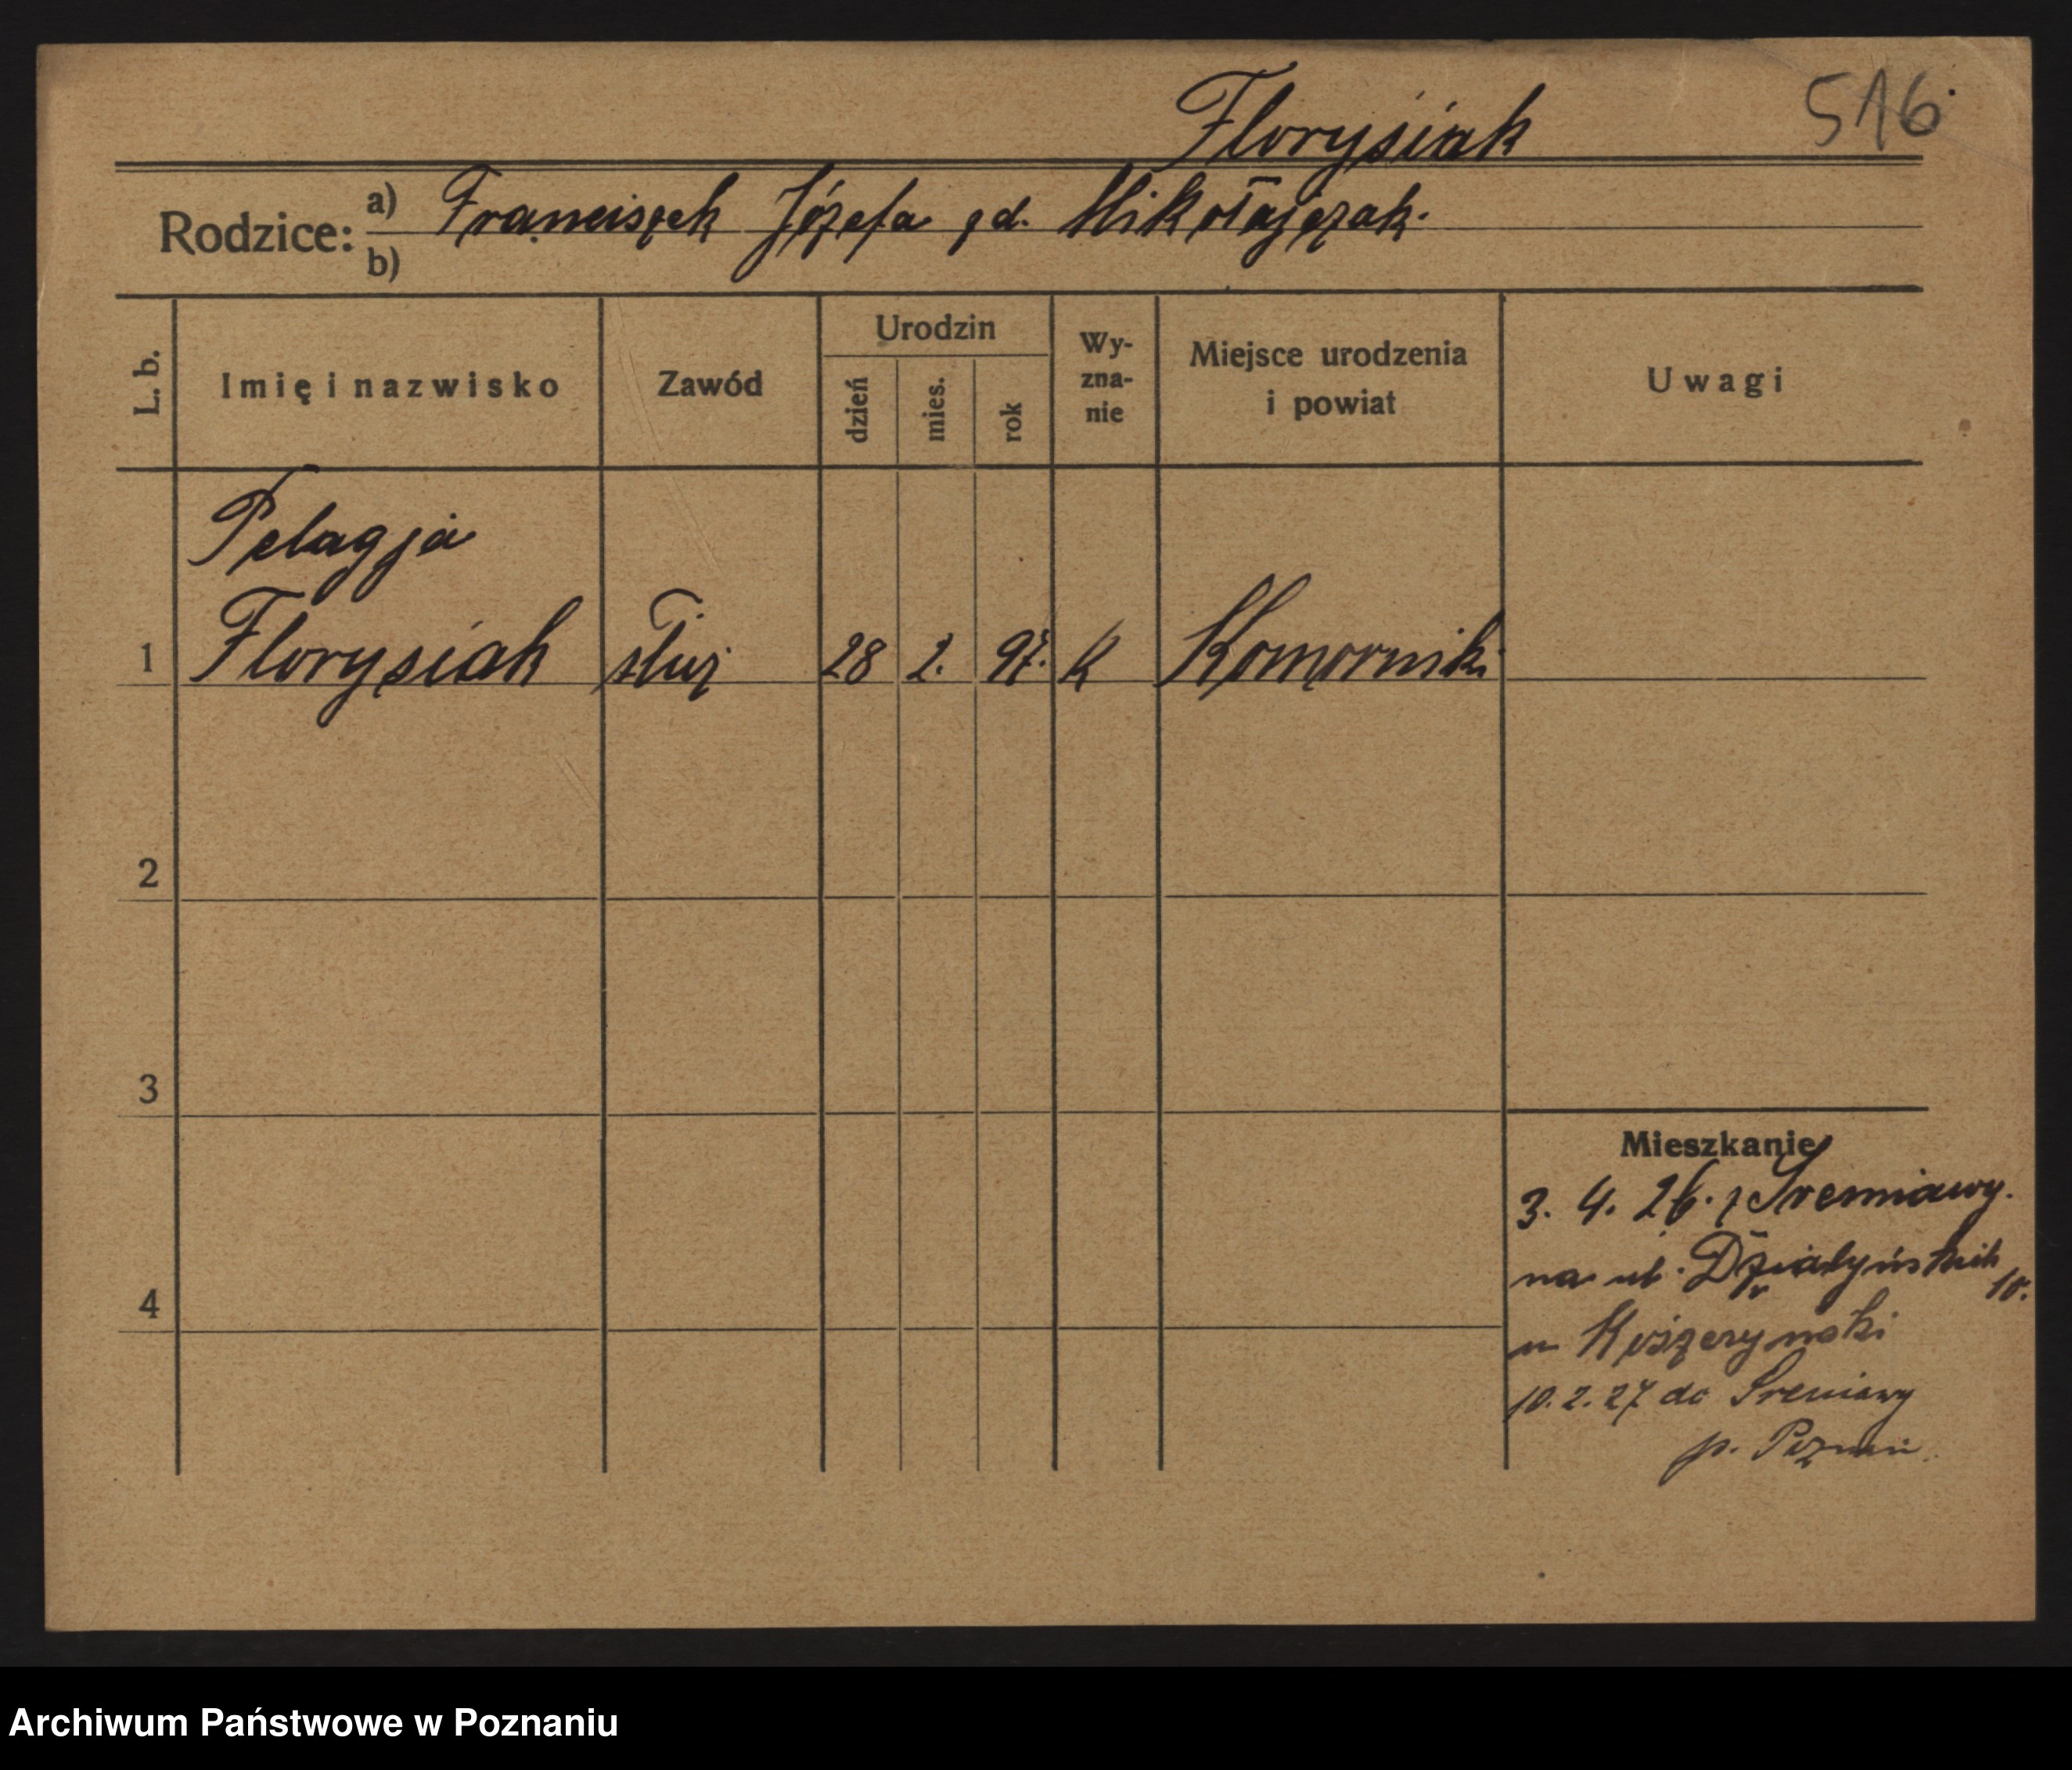 Florysiak 516
Rodzice: a) Franciszek Józefa zd. Mikołajczak.
b)
L. b. Imię i nazwisko Zawód Urodzin dzień mies. rok Wy-zna-nie Miejsce urodzenia i powiat Uwagi
Pelagja
1 Florysiak służ 28 2. 97. k Komorniki
2
3
Mieszkanie
3. 4. 26. z Sremiawy.
na ul. Działyńskich 10.
4
u
10. 2. 27 do Sreniawy
p. Poznań.
Archiwum Państwowe w Poznaniu